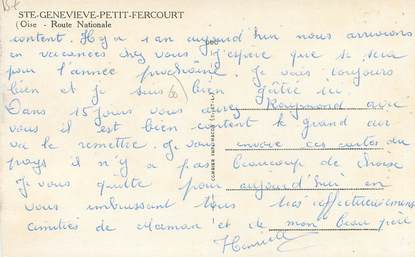 STE-GENEVIEVE-PETIT-FERCOURT
(Oise - Route Nationale
content. Il y a 1 an aujourd'hui nous arrivions
en vacances chez vous j'espère que si sera
pour l'année prochaine. Je vais toujours
bien et je suis bien gâtée ici.
Dans 15 jours vous aurez Raymond avec
vous il est bien content le grand air
va le remettre. Je vous envoie ces cartes du
pays il n'y a pas beaucoup de
Je vous quitte pour aujourd'hui en
vous embrassant tous très affectueusement
amitiés de maman et de mon beau père